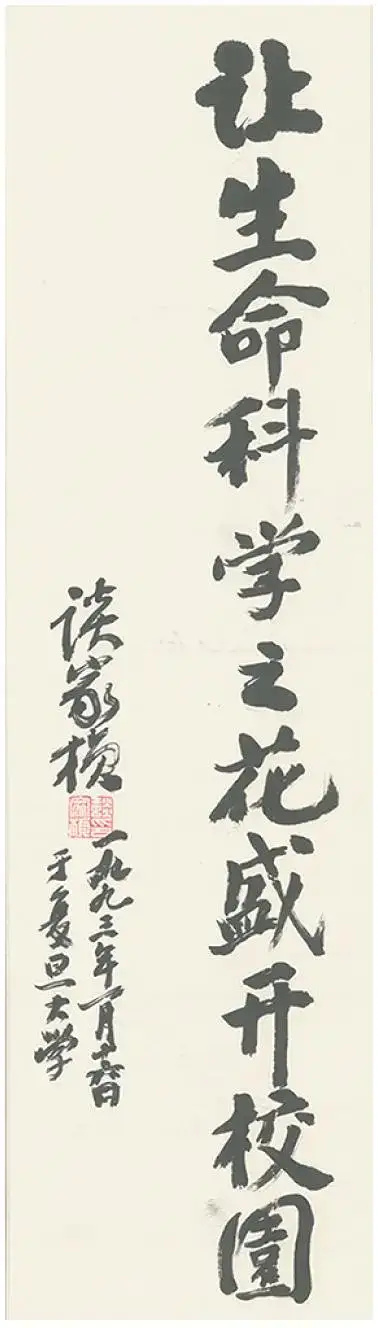 让生命科学之花盛开校園
谈家桢
一九九三年一月十六日
于复旦大学